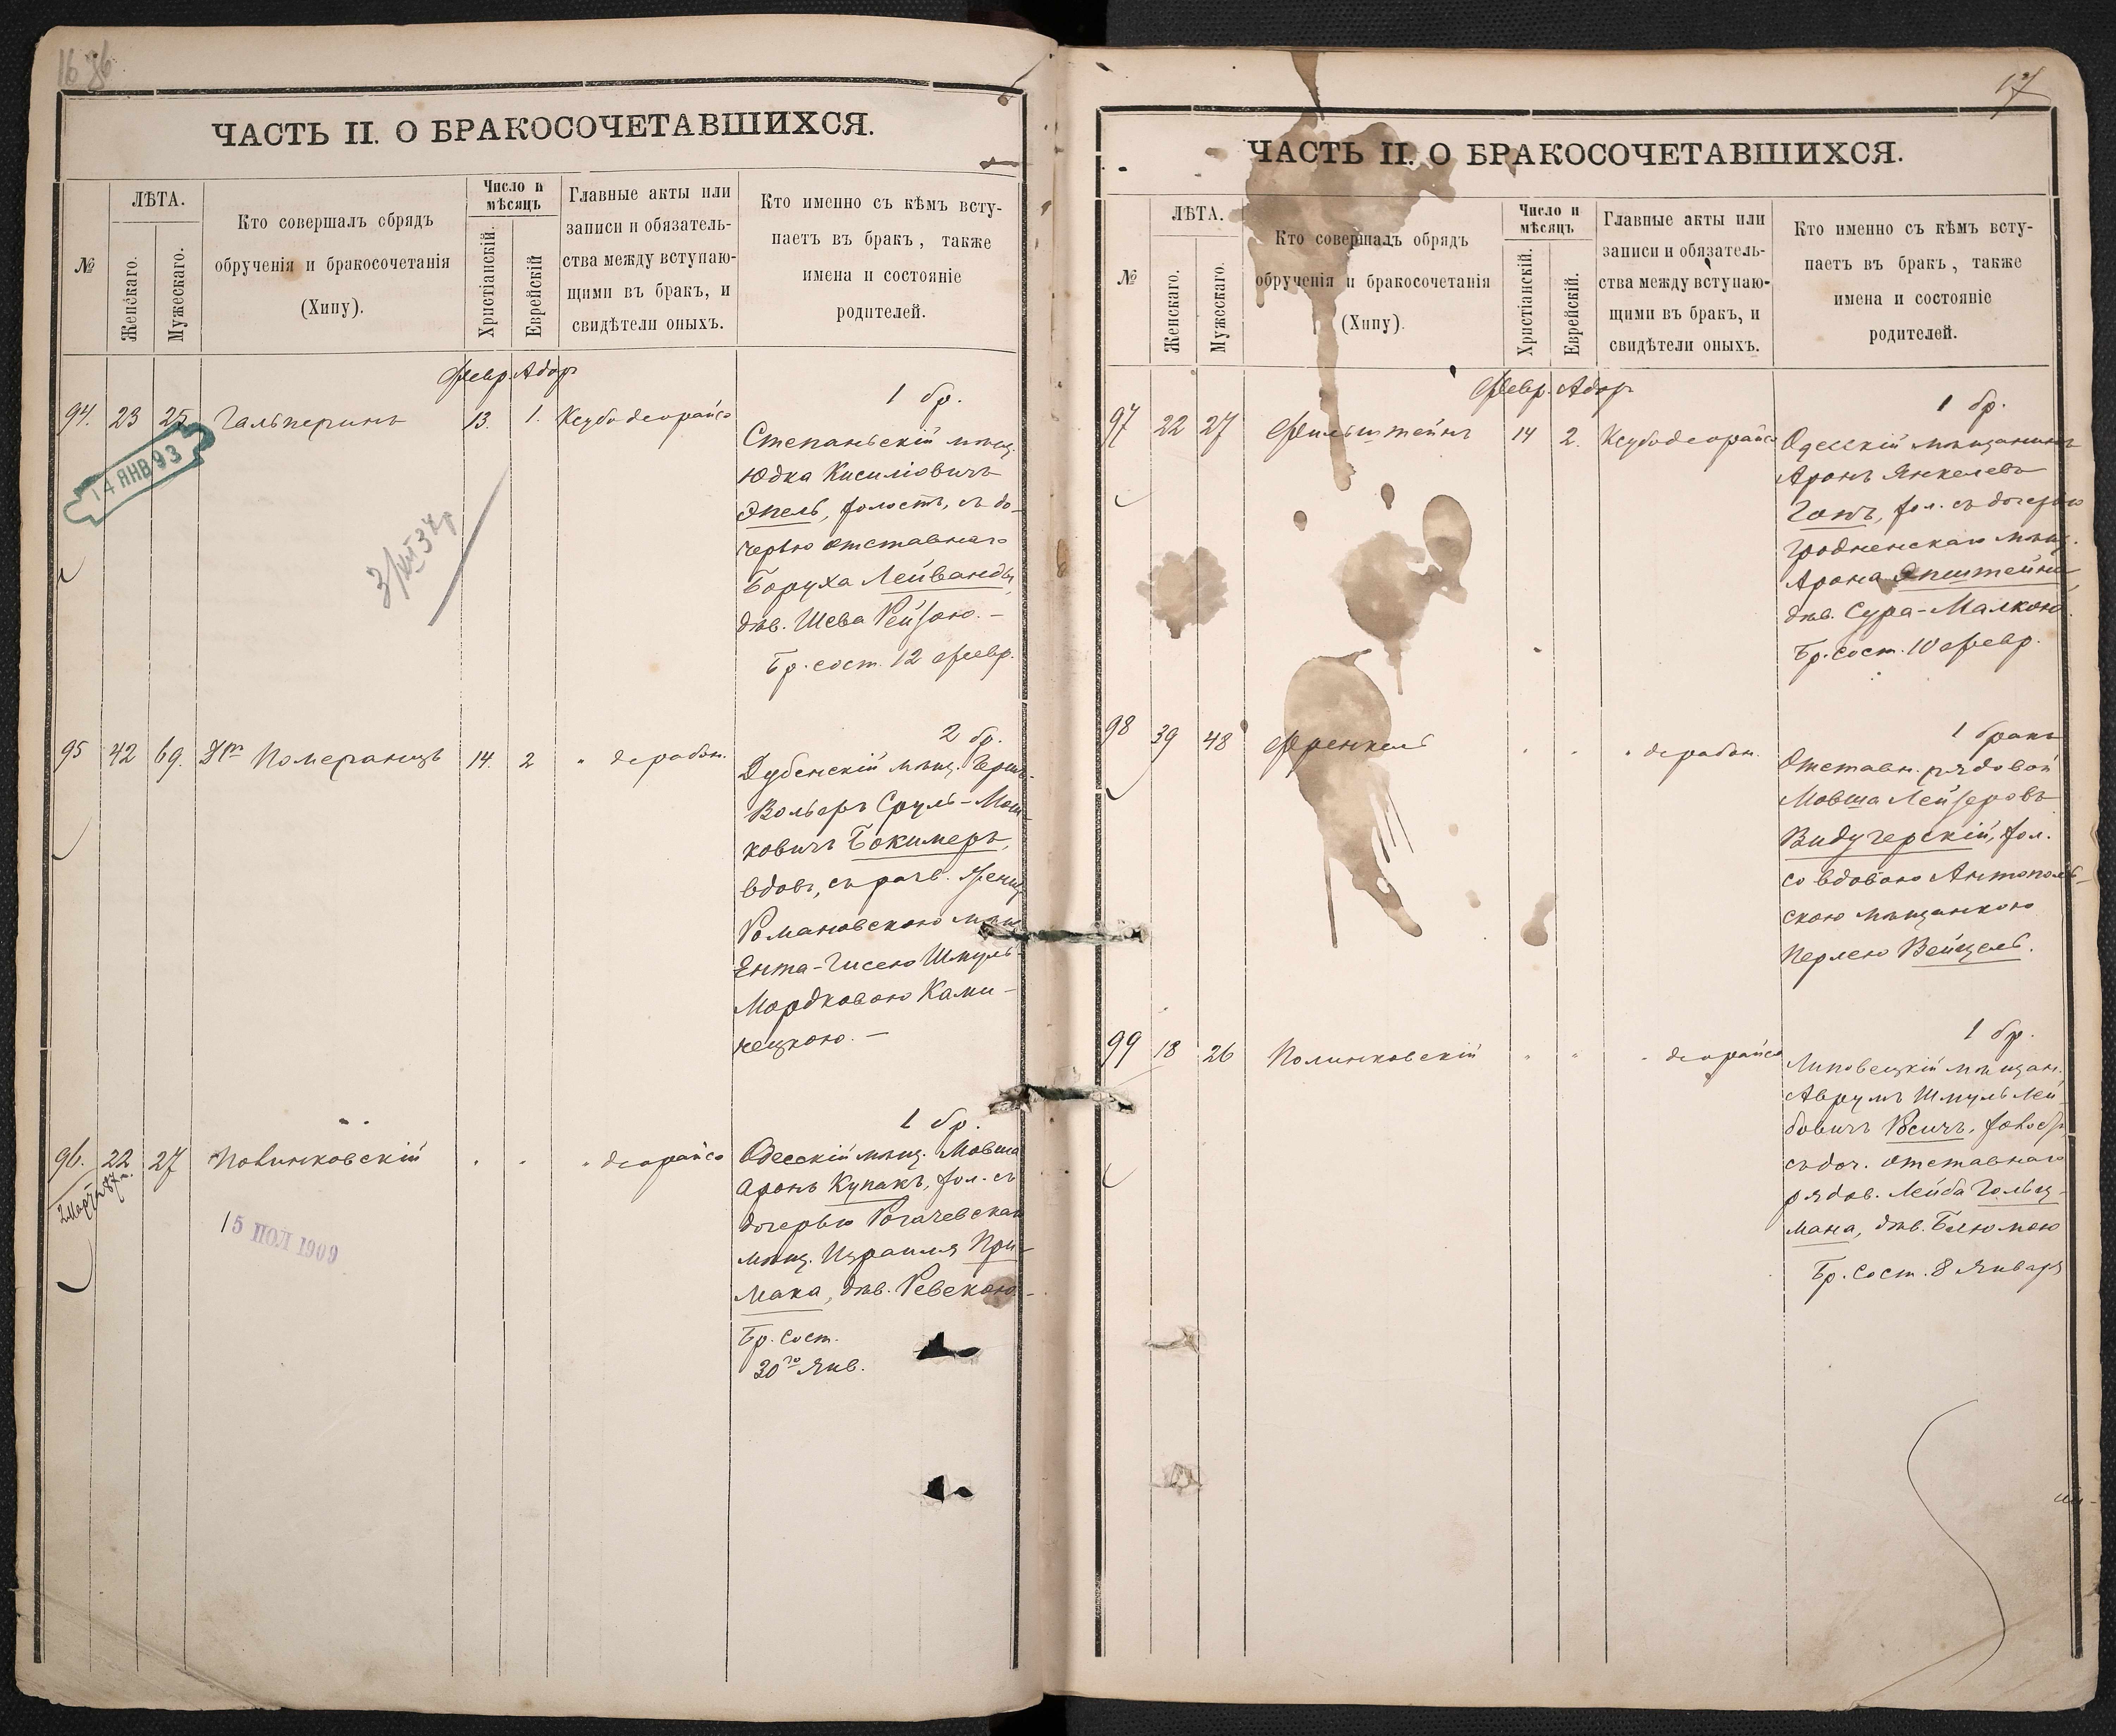 16
ЧАСТЬ II. О БРАКОСОЧЕТАВШИХСЯ.
№
ЛѢТА.
Женскаго.
Мужескаго.
Кто совершалъ обрядъ
обрученія и бракосочетанія
(Хипу).
Число и
мѣсяцъ
Христіанскій.
Еврейскій
Главные акты или
записи и обязатель-
ства между вступаю-
щими въ бракъ, и
свидѣтели оныхъ.
Кто именно съ кѣмъ всту-
паетъ въ бракъ, также
имена и состояніе
родителей.
Февр. Адар
94. 23 25 Гальперинъ 13. 1. Ксубо деорайсо
1 бр.
Степаньскій мѣщ.
Юдка Кисиліовичъ
Эпель, холость, съ до-
черью отставнаго
Боруха Лейванды,
дѣв. Шева Рейзою. –
Бр. сост. 12 февр.
14 ЯНВ 93
95 42 69. Дръ Померанцъ 14. 2 " дерабон.
2 бр.
Дубенскій мѣщ. Герш-
Вольфъ Сруль-Мош-
ковичъ Бокимеръ,
вдов., съ разв.
Романовскою мѣщ.
Ента-Гисею Шмуль-
Мордковою Ками-
нецкою. –
96. 22 27 Полинковскій " " " деорайсо
2 Марта 87 г.
15 ІЮЛ 1909
1 бр.
Одесскій мѣщ. Мовша
Аронъ Купакъ, хол. съ
дочерью Рогачевскаго
мѣщ. Израиля При-
мака, дѣв. Ревекою. –
Бр. сост.
30го Янв.
17
ЧАСТЬ II. О БРАКОСОЧЕТАВШИХСЯ.
№
ЛѢТА.
Женскаго.
Мужескаго.
Кто совершалъ обрядъ
обрученія и бракосочетанія
(Хипу).
Число и
мѣсяцъ
Христіанскій.
Еврейскій.
Главные акты или
записи и обязатель-
ства между вступаю-
щими въ бракъ, и
свидѣтели оныхъ.
Кто именно съ кѣмъ всту-
паетъ въ бракъ, также
имена и состояніе
родителей.
Февр. Адар
97 22 27 Фильштейнъ 14 2. Ксубо деорайсо
1 бр.
Одесскій мѣщанинъ
Аронъ Янкелевъ
хол. съ дочерью
Гродненскаго мѣщ.
Арона Эпштейна,
дѣв. Сура-Малкою.
Бр. сост. 10 февр.
98 39 48 Френкель " " " дерабон.
1 бракъ
Отставн. рядовой
Мовша Лейзеровъ
Видучерскій, хол.
со вдовою Антополь-
скою мѣщанкою
Перлею Вейцель.
99 18 26 Полинковскій " " " деорайсо
1 бр.
Липовецкій мѣщан.
Аврумъ Шмуль Лей-
бовичъ
съ доч. отставнаго
рядов. Лейба Гольц-
мана, дѣв. Блюмою
Бр. сост. 8 Января